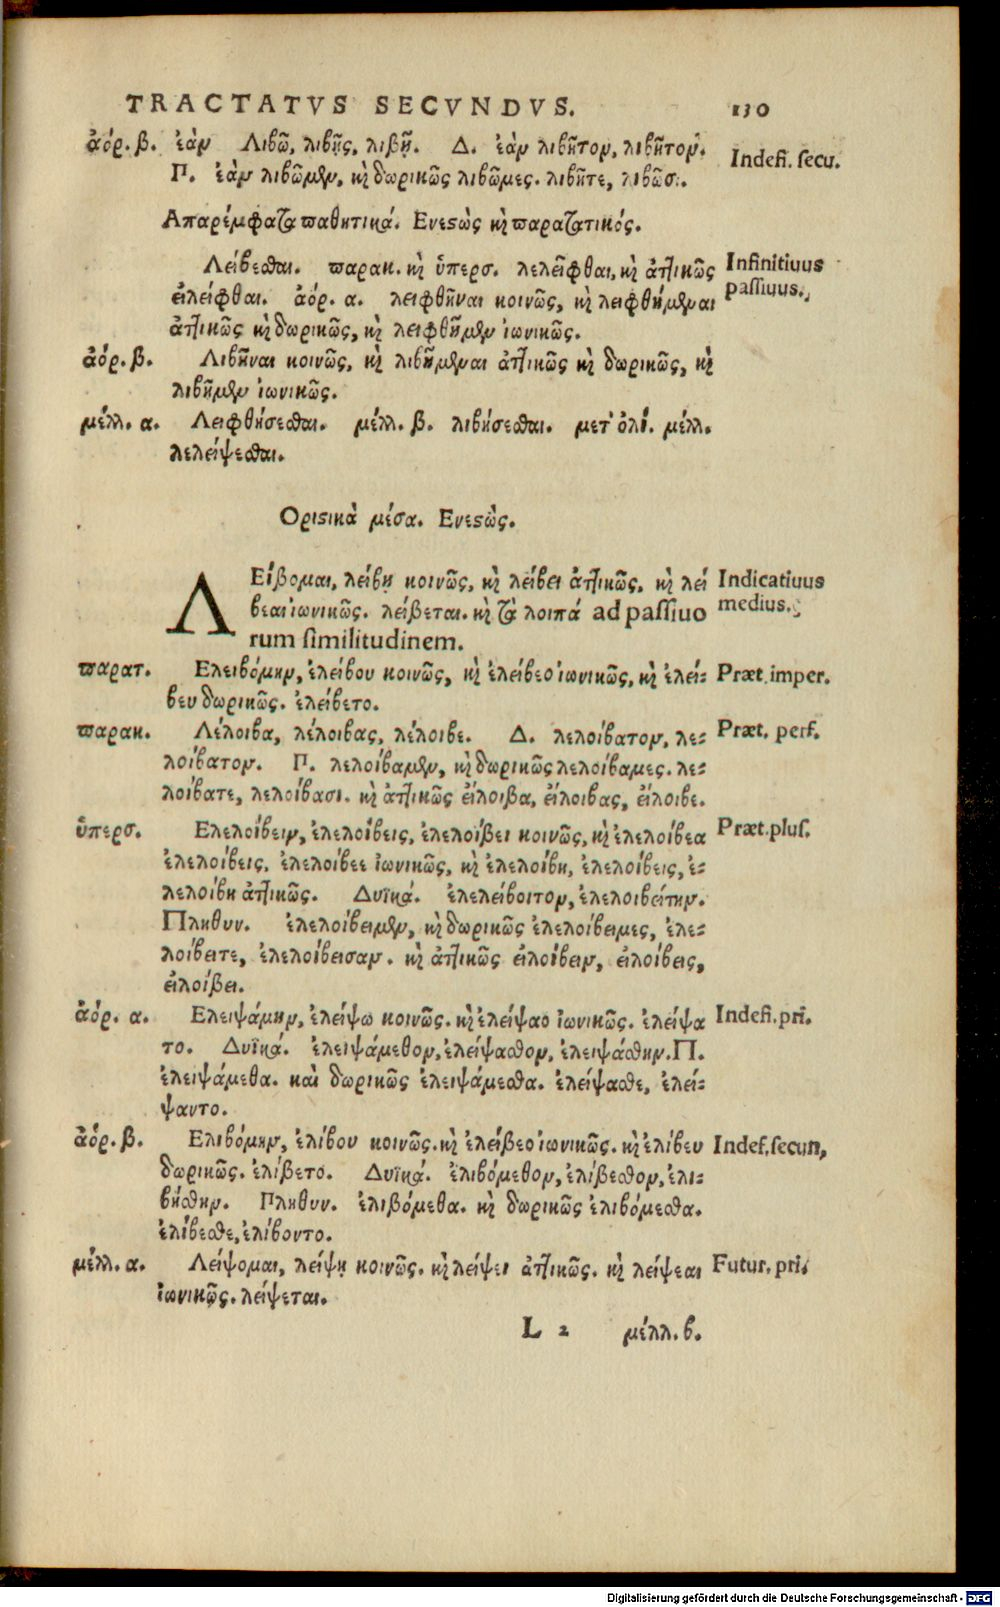 TRACTATVS SECVNDVS. 130
ἀόρ. β. ἐὰν Λιβῶ, λιβῇς, λιβῇ. Δ. ἐὰν λιβῆτον, λιβῆτον. Indefi. secu.
Π. ἐὰν λιβῶμεν, καὶ δωρικῶς λιβῶμες. λιβῆτε, λιβῶσι.
Απαρέμφατα παθητικά. Ενεστὼς καὶ παρατατικός.
Λείβεσθαι. παρακ. καὶ ὑπερσ. λελεῖφθαι, καὶ ἀττικῶς Infinitiuus
εἰλεῖφθαι. ἀόρ. α. λειφθῆναι κοινῶς, καὶ λειφθήμεναι passiuus.
ἀττικῶς καὶ δωρικῶς, καὶ λειφθῆμεν ἰωνικῶς.
ἀόρ. β. Λιβῆναι κοινῶς, καὶ λιβήμεναι ἀττικῶς καὶ δωρικῶς, καὶ
λιβῆμεν ἰωνικῶς.
μέλλ. α. Λειφθήσεσθαι. μέλλ. β. λιβήσεσθαι. μετ' ὀλί. μέλλ.
λελείψεσθαι.
Οριστικὰ μέσα. Ενεστώς.
ΛΕίβομαι, λείβῃ κοινῶς, καὶ λείβει ἀττικῶς, καὶ λεί Indicatiuus
βεαι ἰωνικῶς. λείβεται. καὶ τὰ λοιπά ad passiuo medius.
rum similitudinem.
παρατ. Ελειβόμην, ἐλείβου κοινῶς, καὶ ἐλείβεο ἰωνικῶς, καὶ ἐλεί- Præt. imper.
βευ δωρικῶς. ἐλείβετο.
παρακ. Λέλοιβα, λέλοιβας, λέλοιβε. Δ. λελοίβατον, λε- Præt. perf.
λοίβατον. Π. λελοίβαμεν, καὶ δωρικῶς λελοίβαμες. λε-
λοίβατε, λελοίβασι. καὶ ἀττικῶς εἴλοιβα, εἴλοιβας, εἴλοιβε.
ὑπερσ. Ελελοίβειν, ἐλελοίβεις, ἐλελοίβει κοινῶς, καὶ ἐλελοίβεα Præt. plus.
ἐλελοίβεις, ἐλελοίβεε ἰωνικῶς, καὶ ἐλελοίβη, ἐλελοίβεις, ἐ-
λελοίβη ἀττικῶς. Δυϊκά. ἐλελείβοιτον, ἐλελοιβείτην.
Πληθυν. ἐλελοίβειμεν, καὶ δωρικῶς ἐλελοίβειμες, ἐλε-
λοίβειτε, ἐλελοίβεισαν. καὶ ἀττικῶς εἰλοίβειν, εἰλοίβεις,
εἰλοίβει.
ἀόρ. α. Ελειψάμην, ἐλείψω κοινῶς. καὶ ἐλείψαο ἰωνικῶς. ἐλείψα Indefi. pri.
το. Δυϊκά. ἐλειψάμεθον, ἐλείψασθον, ἐλειψάσθην. Π.
ἐλειψάμεθα. καὶ δωρικῶς ἐλειψάμεσθα. ἐλείψασθε, ἐλεί-
ψαντο.
ἀόρ. β. Ελιβόμην, ἐλίβου κοινῶς. καὶ ἐλείβεο ἰωνικῶς. καὶ ἐλίβευ Indef. secun,
δωρικῶς. ἐλίβετο. Δυϊκά. ἐλιβόμεθον, ἐλίβεσθον, ἐλι-
βήσθην. Πληθυν. ἐλιβόμεθα. καὶ δωρικῶς ἐλιβόμεσθα.
ἐλίβεσθε, ἐλίβοντο.
μέλλ. α. Λείψομαι, λείψῃ κοινῶς. καὶ λείψει ἀττικῶς. καὶ λείψεαι Futur. pri.
ἰωνικῶς. λείψεται.
L 2 μέλλ. β.
Digitalisierung gefördert durch die Deutsche Forschungsgemeinschaft - DFG